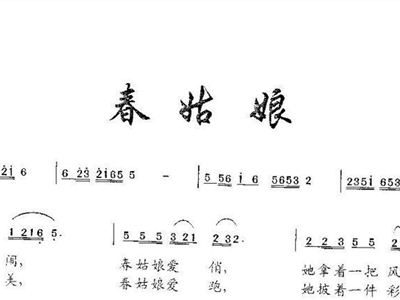 春姑娘
2i 6 | 6 23 2165 5 - | 5 56 i 6 5653 | 235i 6532
1 216 5. | 5 5 5 3 21 2 32. | 2 2 3 5 5 5
间, 春姑娘爱 俏, 她拿着一把 风
美, 春姑娘爱 跑, 她披着一件 彩